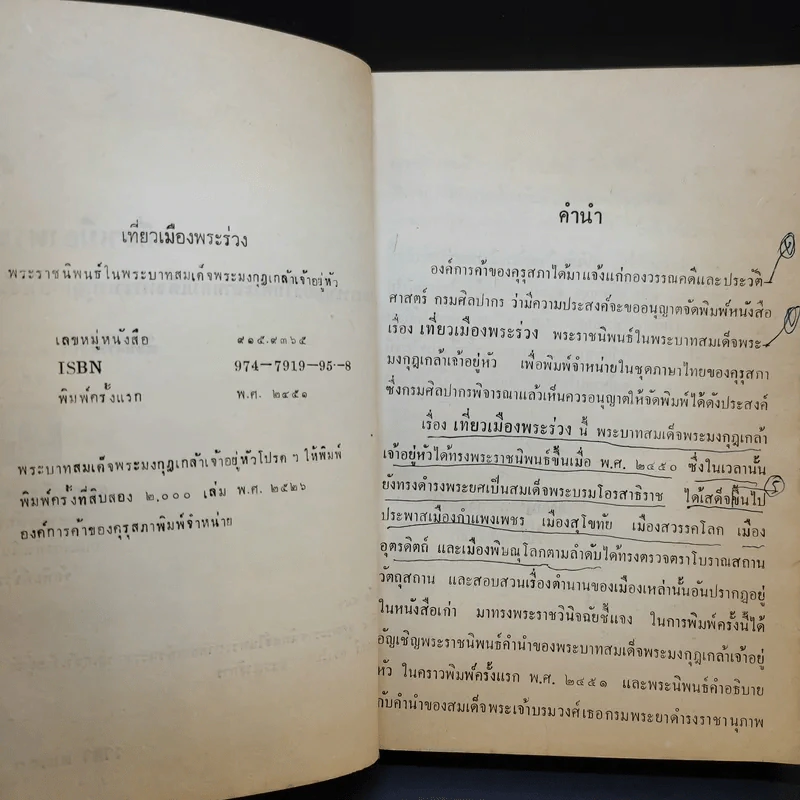 เที่ยวเมืองพระร่วง
พระราชนิพนธ์ในพระบาทสมเด็จพระมงกุฎเกล้าเจ้าอยู่หัว
เลขหมู่หนังสือ ๙๑๕.๙๓๖๕
ISBN 974-7919-95-8
พิมพ์ครั้งแรก พ.ศ. ๒๔๕๑
พระบาทสมเด็จพระมงกุฎเกล้าเจ้าอยู่หัวโปรด ฯ ให้พิมพ์
พิมพ์ครั้งที่สิบสอง ๒,๐๐๐ เล่ม พ.ศ. ๒๕๒๖
องค์การค้าของคุรุสภาพิมพ์จำหน่าย
คำนำ
องค์การค้าของคุรุสภาได้มาแจ้งแก่กองวรรณคดีและประวัติ-
ศาสตร์ กรมศิลปากร ว่ามีความประสงค์จะขออนุญาตจัดพิมพ์หนังสือ
เรื่อง เที่ยวเมืองพระร่วง พระราชนิพนธ์ในพระบาทสมเด็จพระ-
มงกุฎเกล้าเจ้าอยู่หัว เพื่อพิมพ์จำหน่ายในชุดภาษาไทยของคุรุสภา
ซึ่งกรมศิลปากรพิจารณาแล้วเห็นควรอนุญาตให้จัดพิมพ์ได้ดังประสงค์
เรื่อง เที่ยวเมืองพระร่วง นี้ พระบาทสมเด็จพระมงกุฎเกล้า
เจ้าอยู่หัวได้ทรงพระราชนิพนธ์ขึ้นเมื่อ พ.ศ. ๒๔๕๐ ซึ่งในเวลานั้น
ยังทรงดำรงพระยศเป็นสมเด็จพระบรมโอรสาธิราช ได้เสด็จขึ้นไป ๕
ประพาสเมืองกำแพงเพชร เมืองสุโขทัย เมืองสวรรคโลก เมือง
อุตรดิตถ์ และเมืองพิษณุโลกตามลำดับได้ทรงตรวจตราโบราณสถาน
วัตถุสถาน และสอบสวนเรื่องตำนานของเมืองเหล่านั้นอันปรากฏอยู่
ในหนังสือเก่า มาทรงพระราชวินิจฉัยชี้แจง ในการพิมพ์ครั้งนี้ได้
อัญเชิญพระราชนิพนธ์คำนำของพระบาทสมเด็จพระมงกุฎเกล้าเจ้าอยู่
หัว ในคราวพิมพ์ครั้งแรก พ.ศ. ๒๔๕๑ และพระนิพนธ์คำอธิบาย
กับคำนำของสมเด็จพระเจ้าบรมวงศ์เธอ กรมพระยาดำรงราชานุภาพ